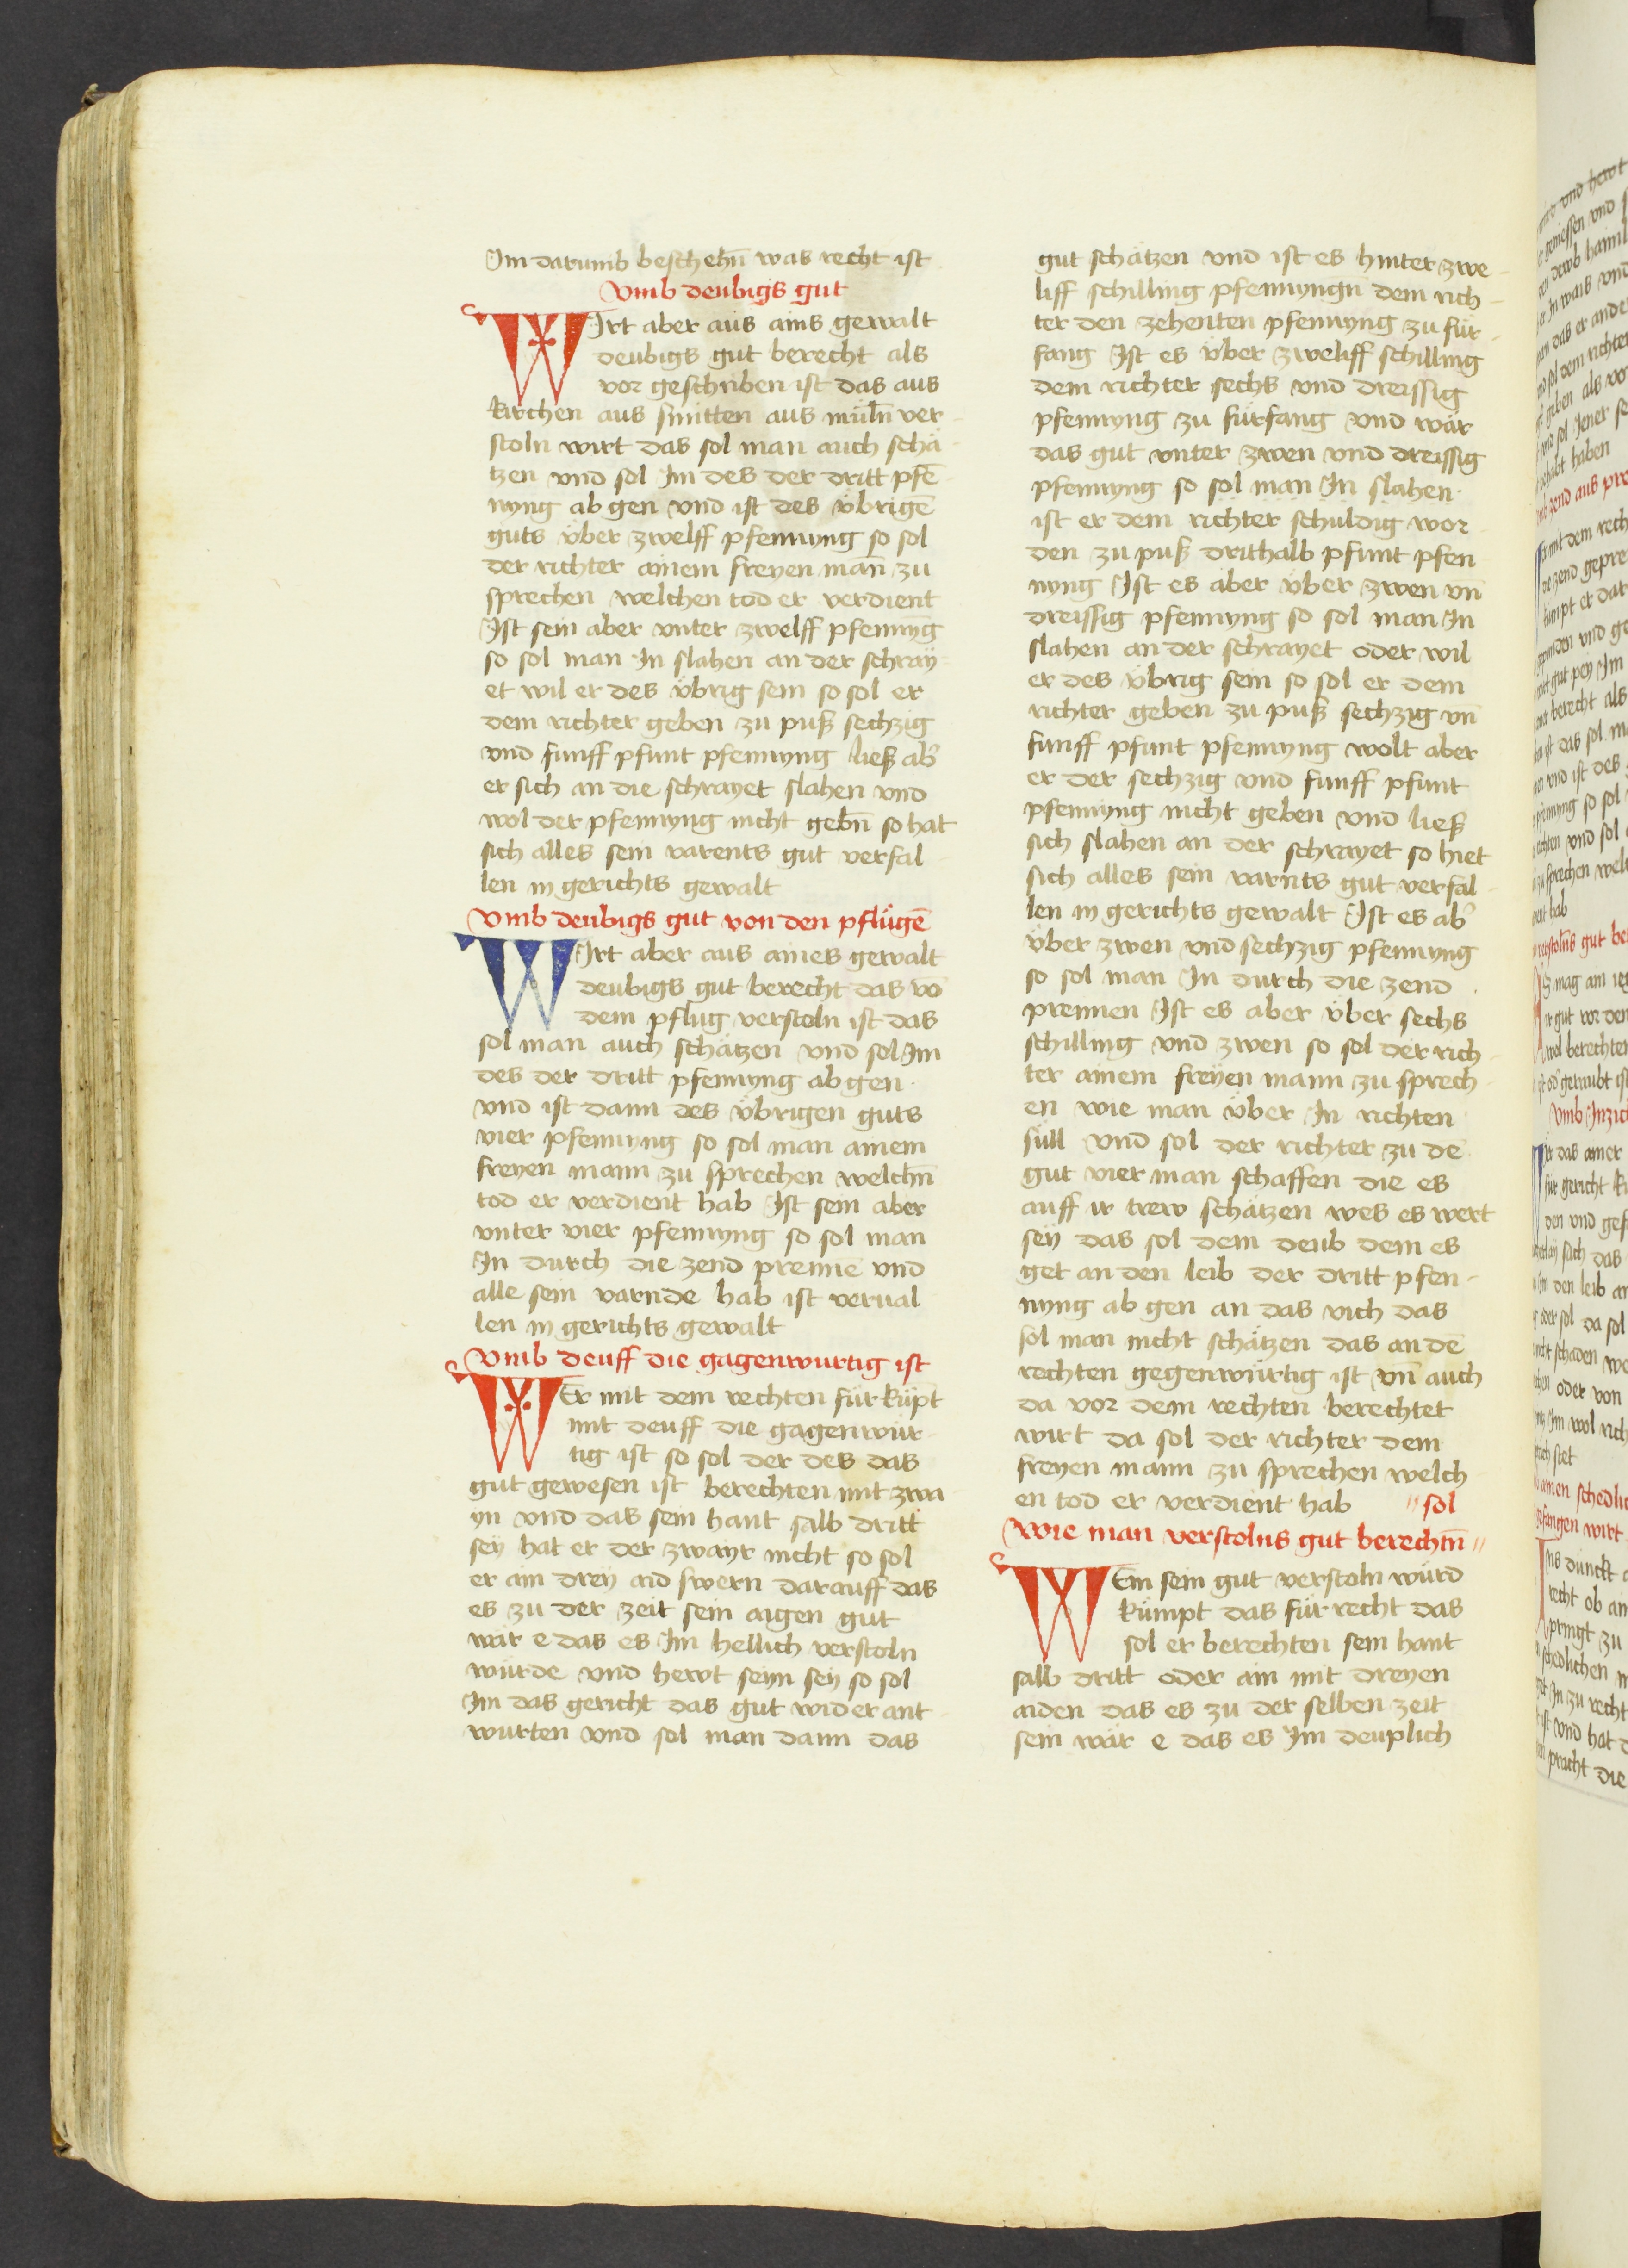 Im darumb beschehn̄ was recht ist
Vmb deubigs gut
WIrt aber aus ains gewalt
deubigs gut berecht als
vor geschriben ist das aus
kirchen aus smitten aus müln̄ ver-
stoln wirt das sol man auch schä-
tzen vnd sol Im des der dritt pfē-
nyng ab gen vnd ist des übrigē
guts über zwelff pfennyng so sol
der richter ainem freyen mañ zu
sprechen welchen tod er verdient
Ist sein aber vnter zwelff pfennyng
so sol man In slahen an der schray-
et wil er des übrig sein so sol er
dem richter geben zu puß sechzig
vnd funff pfunt pfennyng ließ ab̾
er sich an die schrayet slahen vnd
wol der pfennyng nicht gebn̄ so hat
sich alles sein varents gut verfal-
len in gerichts gewalt
Vmb deubigs gut von den pflügē
WIrt aber aus aines gewalt
deubigs gut berecht das vō
dem pflug verstoln ist das
sol man auch schätzen vnd sol Im
des der dritt pfennyng ab gen
vnd ist dann des übrigen guts
vier pfennyng so sol man ainem
freyen mann zu sprechen welchn̄
tod er verdient hab Ist sein aber
vnter vier pfennyng so sol man
In durch die zend prennē vnd
alle sein varnde hab ist verual
len in gerichts gewalt
Vmb deuff die gagenwurtig ist
WEr mit dem rechten für küpt
mit deuff die gagenwür-
tig ist so sol der des das
gut gewesen ist berechten mit zwa
yn vnd das sein hant salb dritt
sey hat er der zwayr nicht so sol
er ain drey aid swern darauff das
es zu der zeit sein aigen gut
wär e das es Im hellich verstoln
würde vnd hewt seyn sey so sol
Im das gericht das gut wider ant-
wurten vnd sol man dann das
gut schätzen vnd ist es hinter zwe-
liff schilling pfennyngn dem rich-
ter den zehenten pfennyng zu für-
fang Ist es über zweliff schilling
dem richter sechs vnd dreissig
pfennyng zu fürfang vnd wär
das gut vnter zwen vnd dreissig
pfennyng so sol man In slahen
ist er dem richter schuldig wor
den zu puß drithalb pfunt pfen
nyng Ist es aber über zwen vn̄
dreissig pfennyng so sol man In
slahen an der schrayet oder wil
er des übrig sein so sol er dem
richter geben zu puß sechzig vn̄
funff pfunt pfennyng wolt aber
er der sechzig vnd funff pfunt
pfennyng nicht geben vnd ließ
sich slahen an der schrayet so hiet
sich alles sein varnts gut verfal-
len in gerichts gewalt Ist es ab̾
über zwen vnd sechzig pfennyng
so sol man In durch die zend
prennen Ist es aber über sechs
schilling vnd zwen so sol der rich-
ter ainem freyen mann zu sprech-
en wie man über In richten
süll vnd sol der richter zu dē
gut vier man schaffen die es
auff ir trew schätzen wes es wert
sey das sol dem deub dem es
get an den leib der dritt pfen-
nyng ab gen an das vich das
sol man nicht schätzen das an dē
rechten gegenwürtig ist vn̄ auch
da vor dem rechten berechtet
wirt da sol der richter dem
freyen mann zu sprechen welch
en tod er verdient hab // sol
Wie man verstolns gut berechtn̄ //
WEm sein gut verstoln würd
kümpt das für recht das
sol er berechten sein hant
salb dritt oder ain mit dreyen
aiden das es zu der selben zeit
sein wär e das es Im deuplich